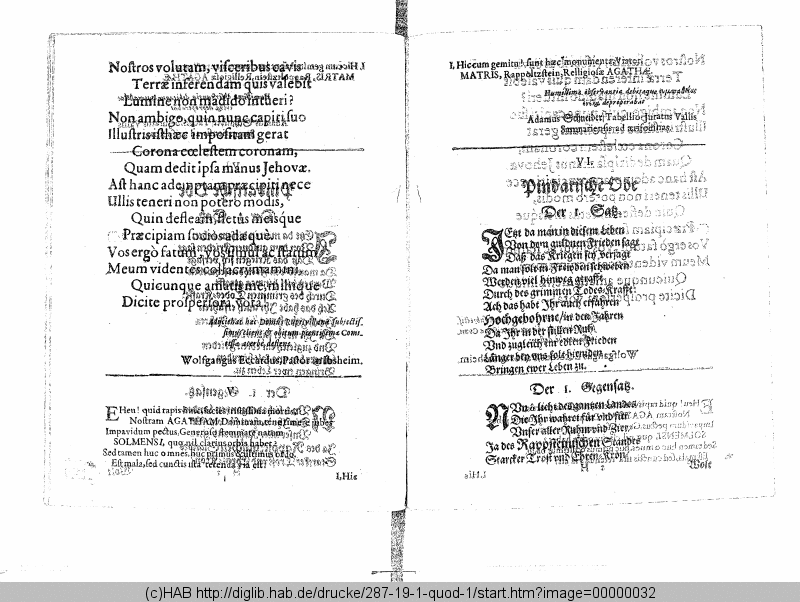 Nostros volutam, visceribus cavis
Terræ inferendam quis valebit
Lumine non madido intueri?
Non ambigo, quin nunc capiti suo
Illustris isthæc impositum gerat
Corona cœlestem coronam,
Quam dedit ipsa manus Jehovæ.
Ast hanc ademptam præcipiti nece
Ullis teneri non potero modis,
Quin defleam, fletus meisque
Præcipiam socios adæque.
Vos ergò fatum, vos
Meum videntes collacrymamini,
Quicunque amatis me, mihique
Dicite prosperiora vota.
Wolfgangus Eccardus, Pastor
V.
EHeu! quid rapis
Nostram AGATHAM
Impavidum pectus, Generoso stemmate natam
SOLMENSI, quo nil clarius orbis habet?
Sed tamen huc omnes, huc primus & ultimus ordo,
Est mala, sed cunctis ista terenda via est!
I, Hic
I, Hic cum gemitu: sunt hæc monumenta
MATRIS, Rappoltzstein, Relligiosæ AGATHÆ.
Adamus Schneiber, Tabellio Juratus Vallis
VI.
Pindarische Ode
Der 1. Satz.
JEtzt da man in diesem Leben
Von dem güldnen Frieden sagt
Daß das Kriegen sey verjagt
Da man sol in Freuden schweben
Werden viel hinweg gerafft
Durch des grimmen Todes Krafft:
Ach das habt Ihr auch erfahren
Hochgebohrne/ in den Jahren
Da Ihr in der stillen Ruh
Und zugleich im edlen Frieden
Länger bey uns solt hienieden
Bringen ewer Leben zu.
Der 1. Gegensatz.
NUn ò liecht des gantzen Landes
Die Ihr wahret für und für
Unser aller Ruhm und Zier
Ja des Rappoltsteinischen Standes
Starcker Trost und Ehren-Kron/
Wolt
(c)HAB http://diglib.hab.de/drucke/287-19-1-quod-1/start.htm?image=00000032